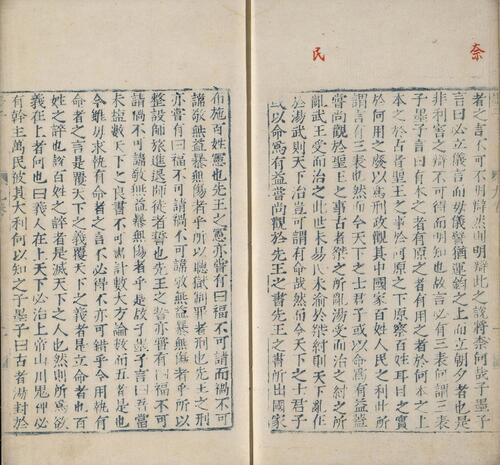 奈
民
者之言不可不明辨然則明辨此之說將奈何哉子墨子
言曰必立儀言而毋儀譬猶運鈞之上而立朝夕者也是
非利害之辨不可得而明知也故言必有三表何謂三表
子墨子言曰有本之者有原之者有用之者於何本之上
本之於古者聖王之事於何原之下原察百姓耳目之實
於何用之廢以爲刑政觀其中國家百姓人民之利此所
謂言有三表也然而今天下之士君子或以命爲有益蓋
嘗尚觀於聖王之事古者桀之所亂湯受而治之紂之所
亂武王受而治之此世未易民未渝於桀紂則天下亂在
於湯武則天下治豈可謂有命哉然而今天下之士君子
或以命爲有益嘗尚觀於先王之書先王之書所出國家
布施百姓憲也先王之憲亦嘗有曰福不可請而禍不可
諱敬無益暴無傷者乎所以聽獄制罪者刑也先王之刑
亦嘗有曰福不可請禍不可諱敬無益暴無傷者乎所以
整設師旅進退師徒者誓也先王之誓亦嘗有曰福不可
請禍不可諱敬無益暴無傷者乎是故子墨子言曰吾當
未鹽數天下之良書不可盡計數大方論數而五者是也
今雖毋求執有命者之言不必得不亦可錯乎今用執有
命者之言是覆天下之義覆天下之義者是立命者也百
姓之誶也說百姓之誶者是滅天下之人也然則所爲欲
義在上者何也曰義人在上天下必治上帝山川鬼神必
有幹主萬民被其大利何以知之子墨子曰古者湯封於